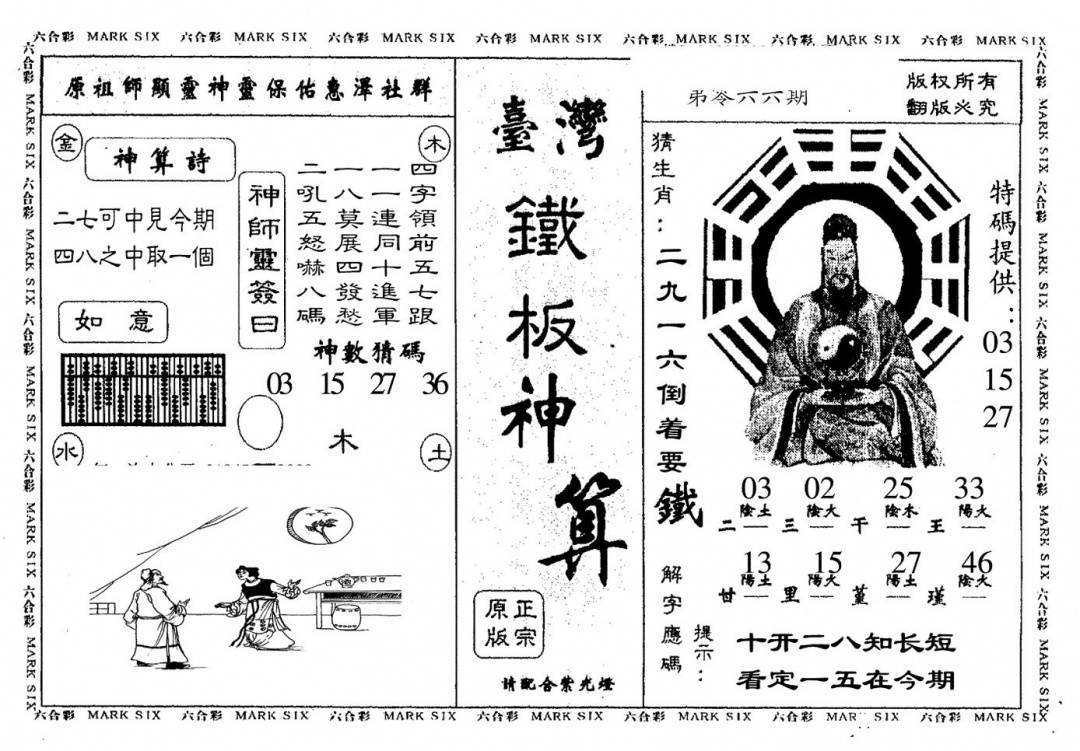 六合彩 MARK SIX 六合彩 MARK SIX 六合彩 MARK SIX 六合彩 MARK SIX 六合彩 MARK SIX 六合彩 MARK SIX 六合彩 MARK SIX
原祖師顯靈神靈保佑惠澤社群
金
木
神算詩
二七可中見今期
四八之中取一個
如意
神師靈簽曰
四字領前五七跟
一一連同十進軍
一八莫展四發愁
二吼五怒嚇八碼
神數猜碼
03 15 27 36
木
水
土
臺灣
鐵板神算
正宗
原版
請配合紫光燈
弟岺六六期
版权所有
翻版必究
猜生肖：二九一六倒着要鐵
特碼提供：
03
15
27
03 02 25 33
陰土 陰火 陰木 陽火
二 三 干 王
13 15 27 46
陽土 陽火 陽土 陰火
甘 里 堇 瑾
解字應碼
提示：
十开二八知长短
看定一五在今期
六合彩 MARK SIX 六合彩 MARK SIX 六合彩 MARK SIX 六合彩 MARK SIX 六合彩 MARK SIX
六合彩 MARK SIX 六合彩 MARK SIX 六合彩 MARK SIX 六合彩 MARK SIX 六合彩 MARK SIX
六合彩 MARK SIX 六合彩 MARK SIX 六合彩 MARK SIX 六合彩 MARK SIX 六合彩 MARK SIX 六合彩 MARK SIX 六合彩 MARK SIX